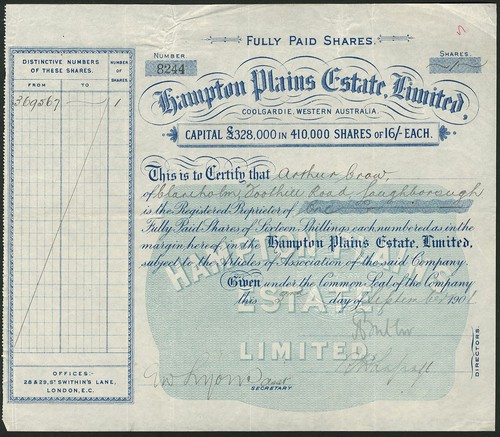 FULLY PAID SHARES.
NUMBER
8244
SHARES.
1
Hampton Plains Estate, Limited,
COOLGARDIE, WESTERN AUSTRALIA.
CAPITAL £328,000 IN 410,000 SHARES OF 16/- EACH.
DISTINCTIVE NUMBERS OF THESE SHARES.
NUMBER OF SHARES
FROM
TO
369567
1
This is to Certify that Arthur Crow
of Clareholm, Toothill Road, Loughborough
is the Registered Proprietor of One
Fully Paid Shares of Sixteen Shillings each numbered as in the
margin hereof in the Hampton Plains Estate, Limited,
subject to the Articles of Association of the said Company.
Given under the Common Seal of the Company
This day of September 1906
HAMPTON PLAINS
ESTATE
LIMITED
DIRECTORS.
SECRETARY
OFFICES:
28 & 29, ST SWITHIN'S LANE,
LONDON, E.C.